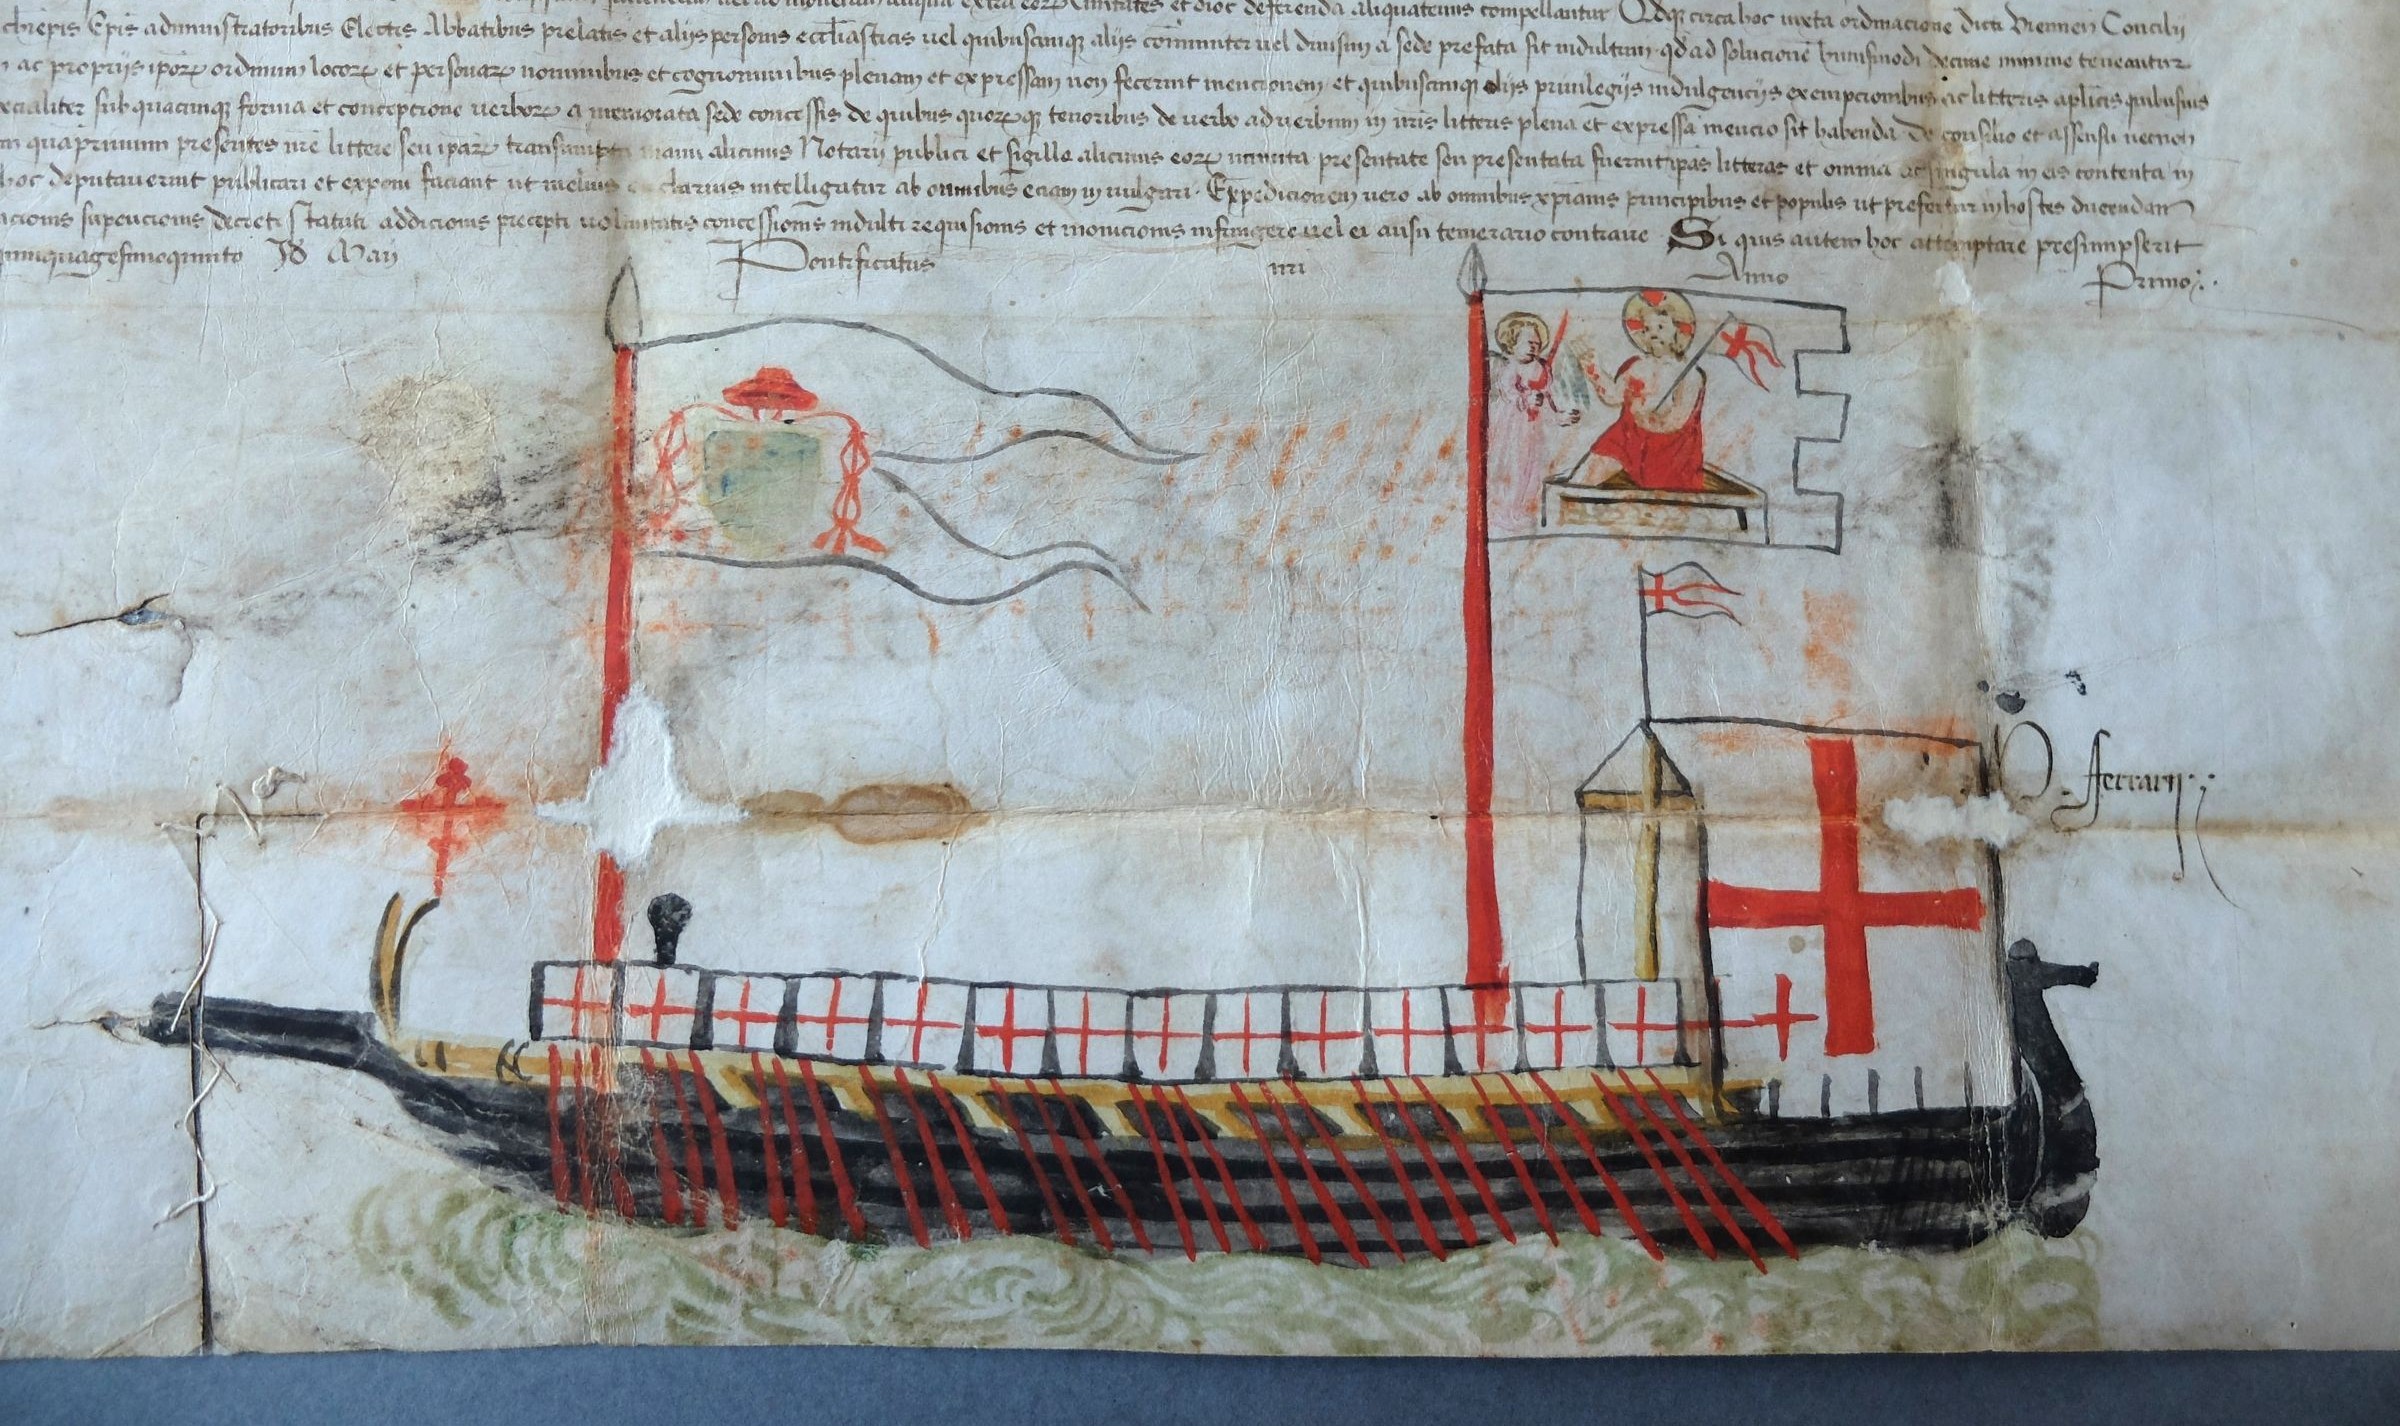 extra eorum Civitates et dioc deferenda aliquatenus compellantur Qdqz circa hoc iuxta ordinacione dicti Viennen Concilii
chiepis Epis administratoribus Electis Abbatibus prelatis et aliis personis eccliasticis vel quibuscumqz aliis communiter vel divisim a sede prefata sit indultum qd ad solucione huiusmodi decime minime teneantur
ac propriis ipoꝝ ordinum locoꝝ et personaꝝ nominibus et cognominibus plenam et expressam non fecerint mencionem et quibuscumqz aliis privilegiis indulgenciis exempcionibus ac litteris aplicis quibusvis
specialiter sub quacumqz forma et concepcione verboꝝ a memorata sede concessis de quibus quoꝝqz tenoribus de verbo ad verbum in nris litteris plena et expressa mencio sit habenda De consilio et assensu
quaprimum presentes nre littere seu ipaꝝ transumpta manu alicuius Notarii publici et sigillo alicuius eoꝝ munita presentate seu presentata fuerint ipas litteras et omnia ac singula in eis contenta in
hoc deputaverint publicari et exponi faciant ut melius et clarius intelligatur ab omnibus eciam in vulgari Expedicionem vero ab omnibus xpianis principibus et populis ut prefertur in hostes
decreti Statuti addicionis precepti voluntatis concessionis indulti requisicionis et monicionis infringere vel ei ausu temerario contraire Si quis autem hoc attemptare presumpserit
quinquagesimoquinto Id Maii Pontificatus nri Anno Primo
ferrarii